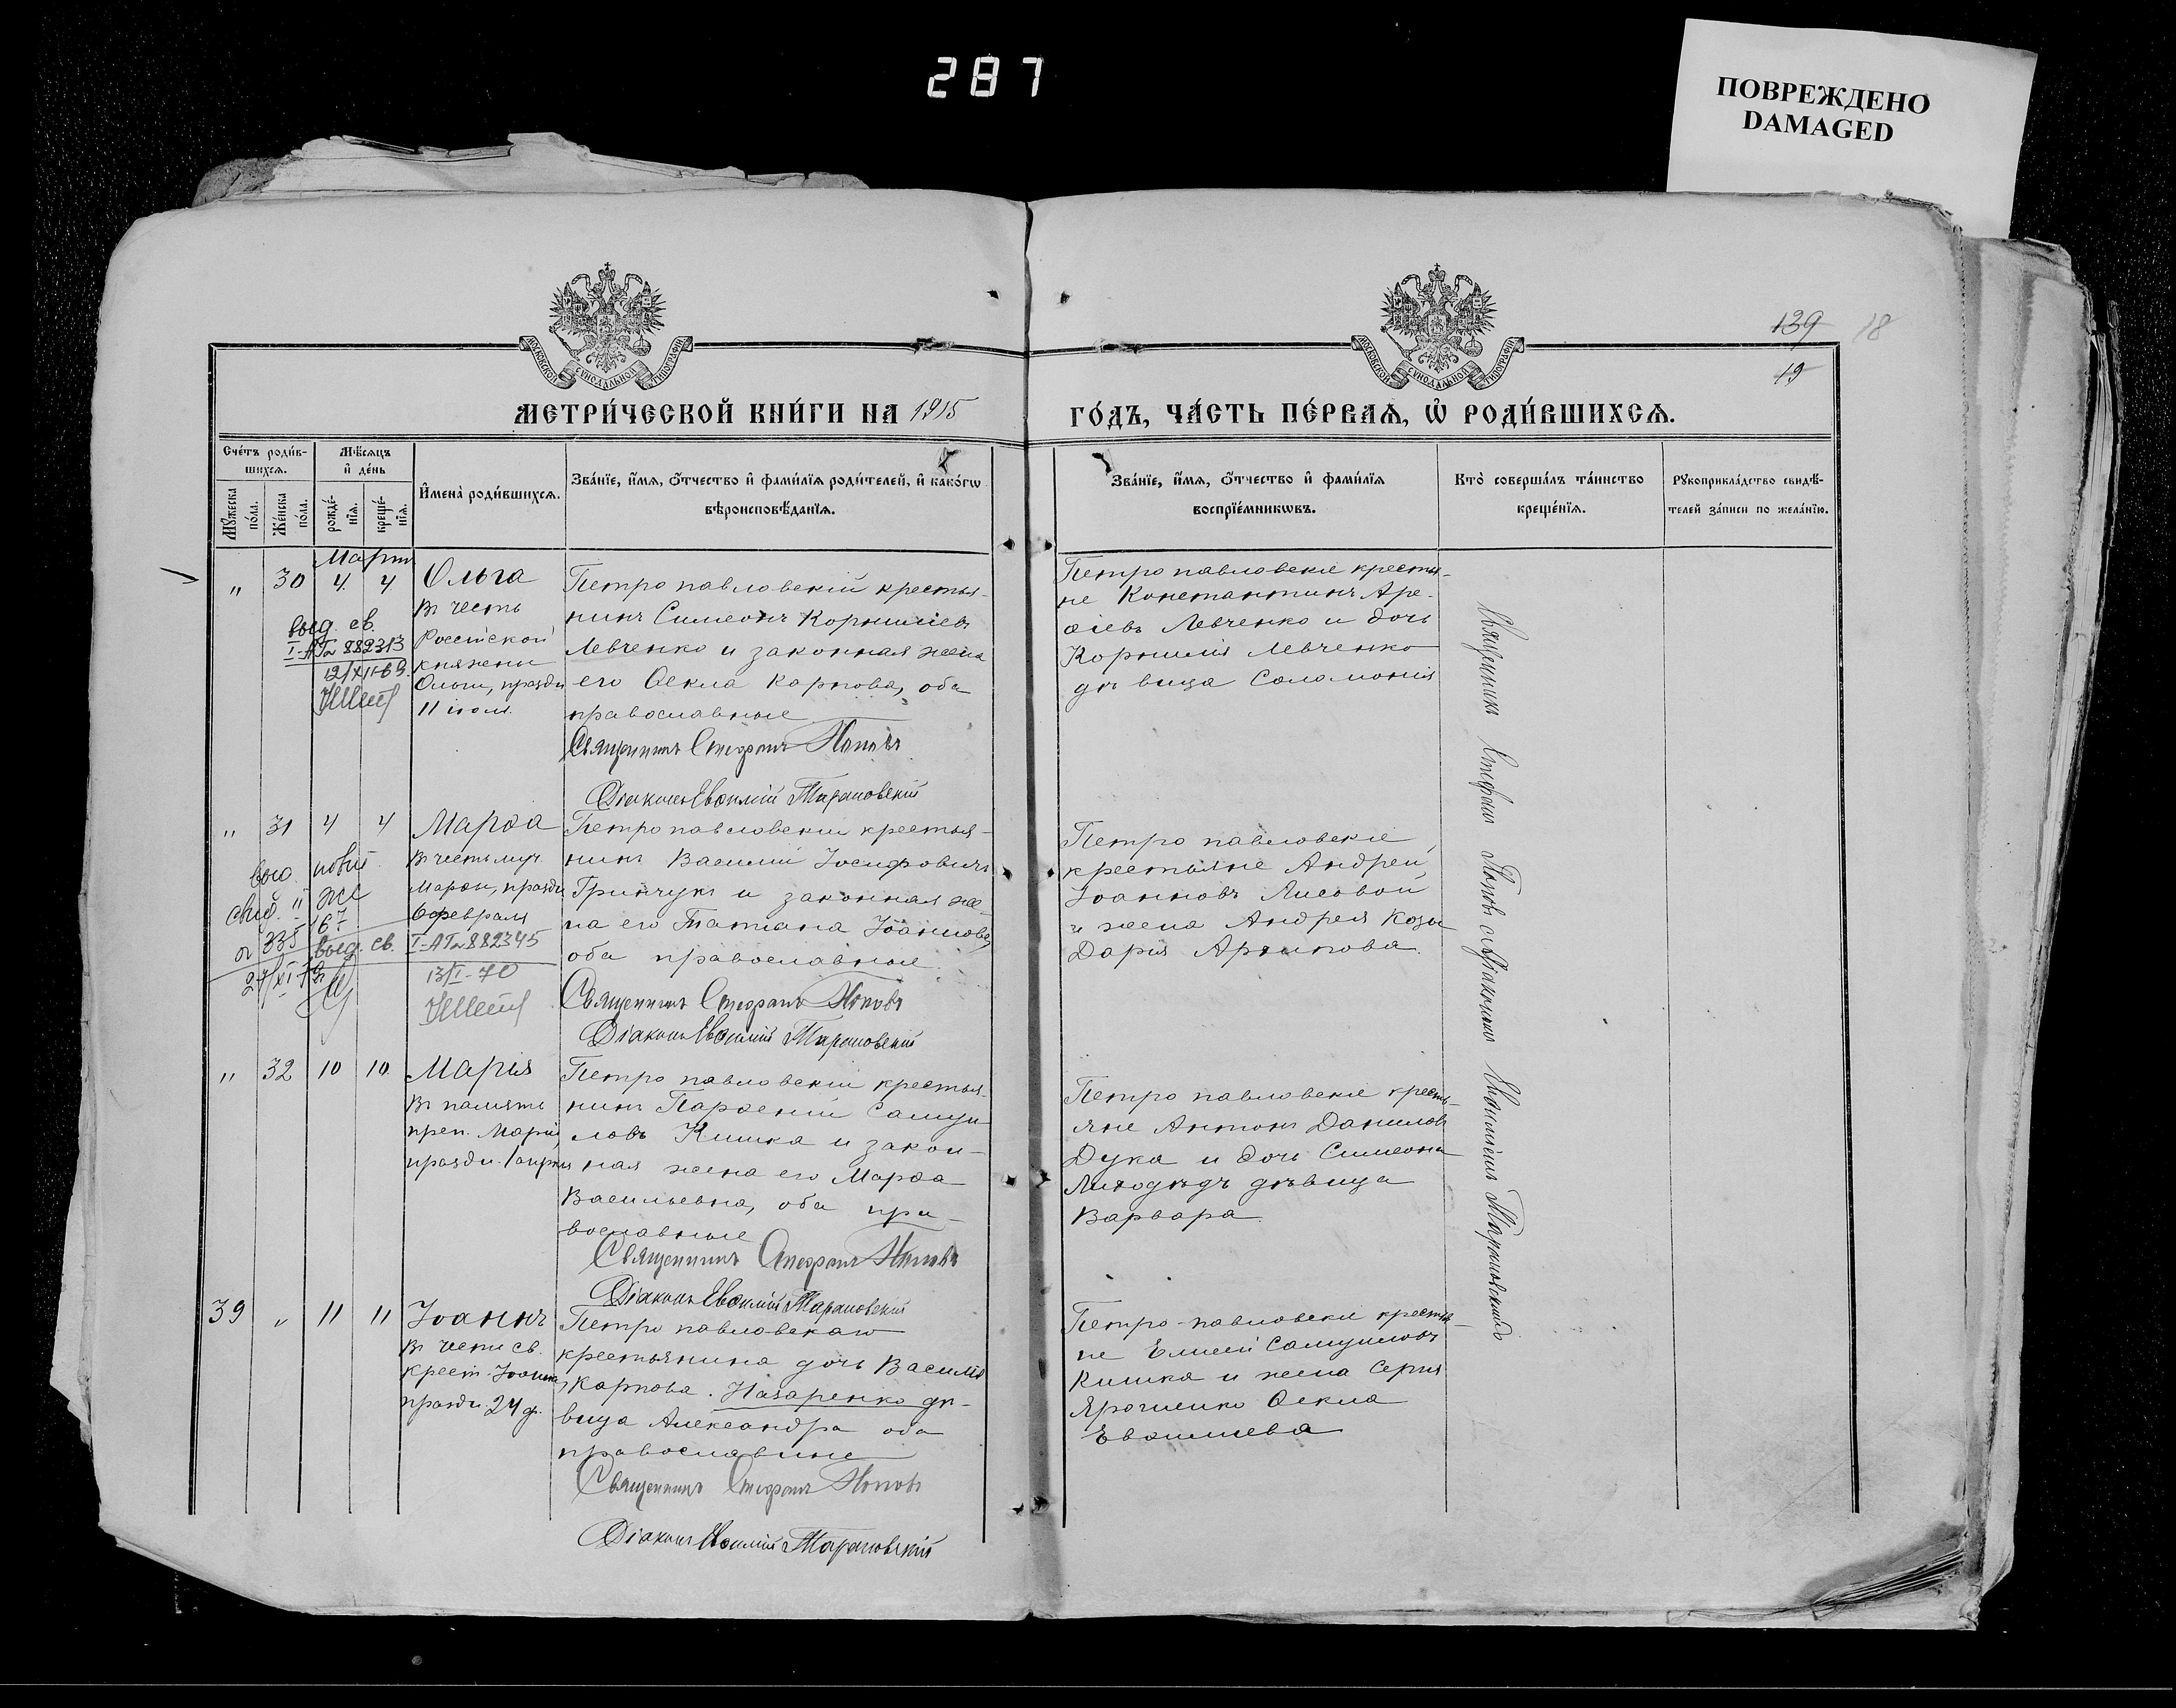 287
ПОВРЕЖДЕНО
DAMAGED
139 18
19
МОСКОВСКОЙ СѴНОДАЛЬНОЙ ТИПОГРАФІИ
МОСКОВСКОЙ СѴНОДАЛЬНОЙ ТИПОГРАФІИ
МЕТРИ́ЧЕСКОЙ КНИ́ГИ НА 1915
ГО́ДЪ, ЧА́СТЬ ПЕ́РВАѦ, Ѡ РОДИ́ВШИХСѦ.
Сче́тъ роди́в-
шихсѧ.
Мꙋ́жеска по́ла.
Же́нска по́ла.
Мѣ́сѧцъ
и҆ де́нь
рожде́-
нїѧ.
креще́-
нїѧ.
И҆мена̀ роди́вшихсѧ.
Зва́нїе, и҆́мѧ, ѻ҆́тчество и҆ фами́лїѧ роди́телей, и҆ како́гѡ
вѣроисповѣ́данїѧ.
Зва́нїе, и҆́мѧ, ѻ҆́тчество и҆ фами́лїѧ
воспрїе́мникѡвъ.
Кто̀ соверша́лъ та́инство
креще́нїѧ.
Рꙋкоприкла́дство свидѣ́-
телей за́писи по жела́нїю.
Мартъ
" 30 4 4
Ольга
Въ честь
Россійской
княжны
Ольги, праздн
11 іюля.
выд. св.
I-АП № 882313
12/XII-69.
Петропавловскій крестья-
нинъ Симеонъ Корниліевъ
Левченко и законная жена
его Ѳекла Карпова, оба
православные
Священникъ Стефанъ Поповъ
Діаконъ Евѳимій Тарановскій
Петропавловскіе крестья-
не Константинъ Аре-
ѳіевъ Левченко и дочь
Корнилія Левченко
дѣвица Соломонія
" 31 4 4
Марѳа
Въ честь муч.
Марѳы, праздн
6 февраля
выд. св. I-АП № 882345
13/I-70
Петропавловскій крестья-
нинъ Василій Іосифовичъ
Гринчукъ и законная же-
на его Татіана Іоаннова,
оба православные.
Священникъ Стефанъ Поповъ
Діаконъ Евѳимій Тарановскій
Петропавловскіе
крестьяне Андрей
Іоанновъ Лисовой
и жена Андрея Козы
Дарія Архипова.
" 32 10 10
Марія
Въ память
преп. Маріи,
праздн. 1 апрѣля
Петропавловскій крестья-
нинъ Парѳеній Самуи
ловъ Кишка и закон-
ная жена его Марѳа
Васильевна, оба пра-
вославные
Священникъ Стефанъ Поповъ
Діаконъ Евѳимій Тарановскій
Петропавловскіе кресть-
яне Антонъ Даниловъ
Дука и дочь Симеона
Лиходѣдъ дѣвица
Варвара.
39 " 11 11
Іоаннъ
Въ честь св.
Крест. Іоанна,
праздн 24 ф.
Петропавловскаго
крестьянина дочь Василія
Карпова. Назаренко дѣ-
вица Александра оба
православные
Священникъ Стефанъ Поповъ
Діаконъ Евѳимій Тарановскій
Петро-павловскіе крестья-
не Елисей Самуиловъ
Кишка и жена Сергія
Ярошенко Ѳекла
Евѳиміева
Священникъ Стефанъ Поповъ съ Діакономъ Евѳиміемъ Тарановскимъ